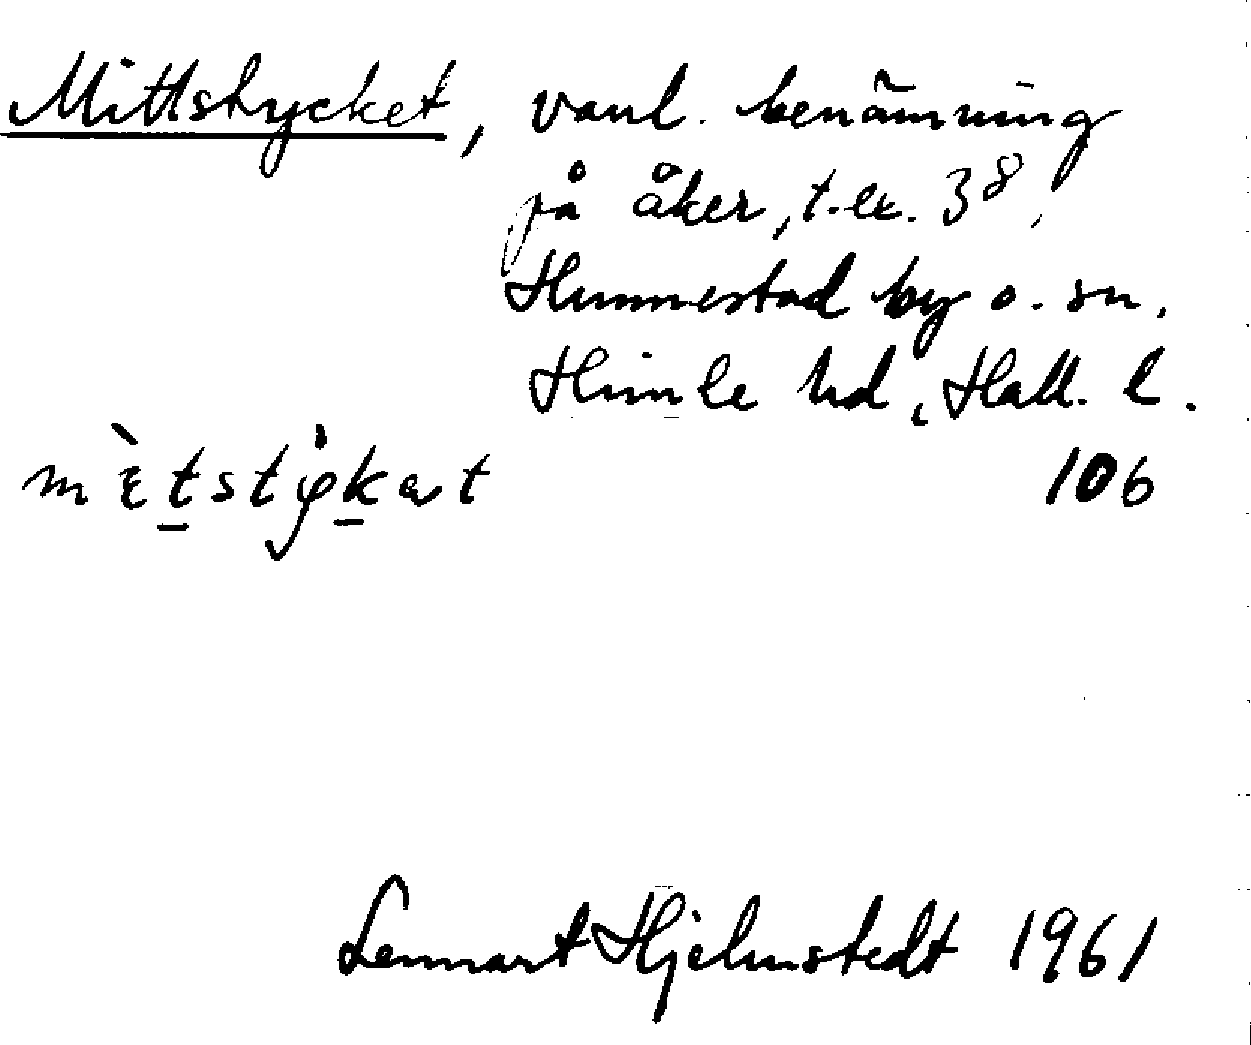 Mittstycket, vanl. benämning
på åker, t.ex. 3⁸,
Hunnestad by o. sn,
Himle hd, Hall. l.
106
Lennart Hjelmstedt 1961